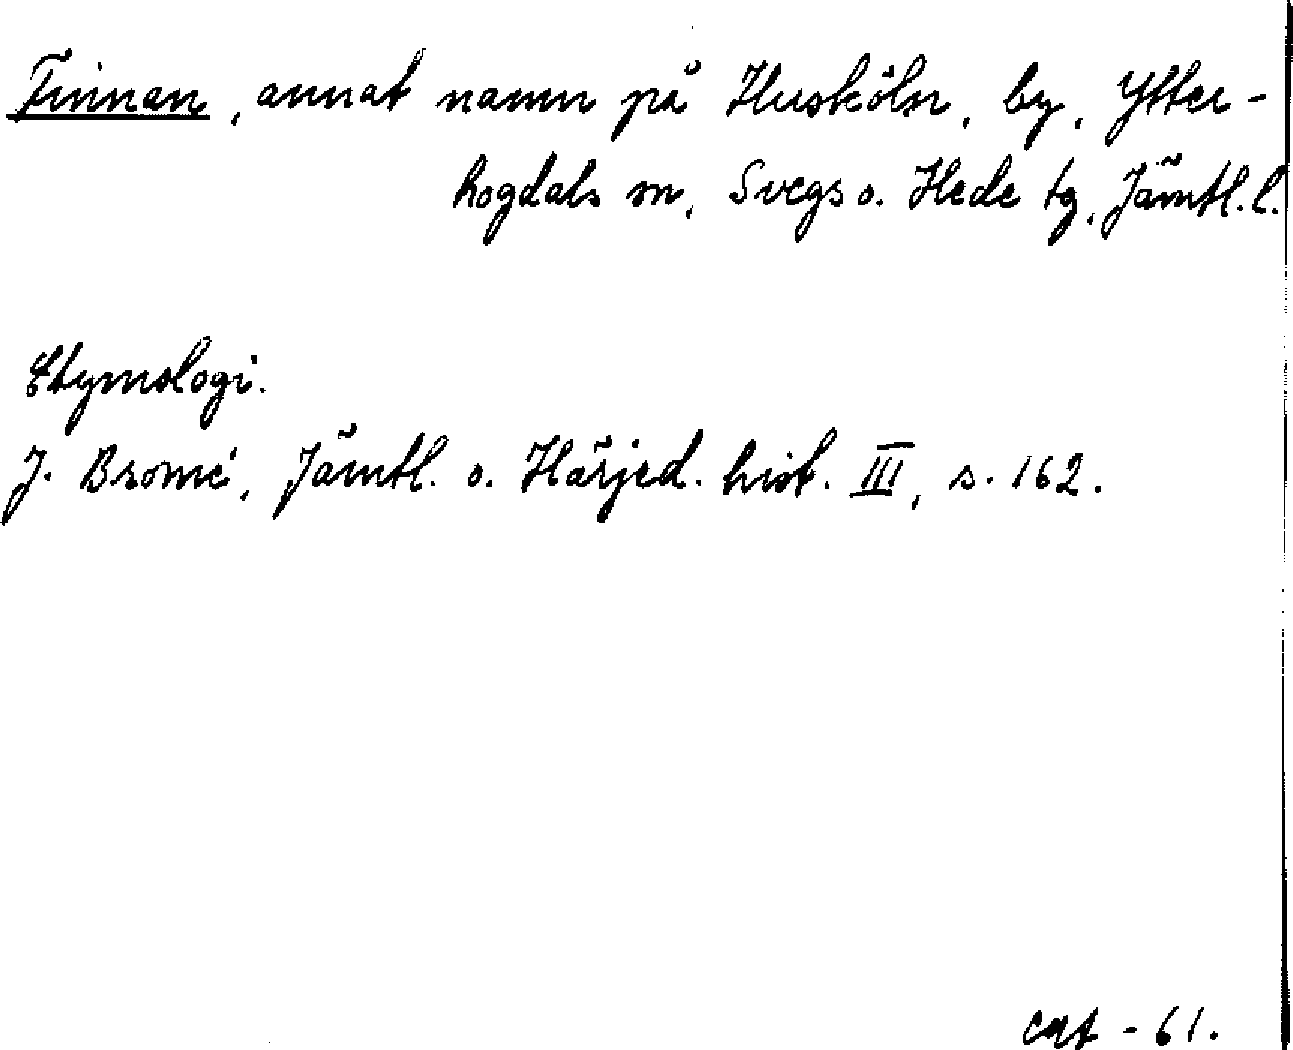 Finnan, annat namn på Husköln, by, Ytter-
hogdals sn, Svegs o. Hede tg, Jämtl. l.
Etymologi.
J. Bromé, Jämtl. o. Härjed. hist. III, s. 162.
- 61.